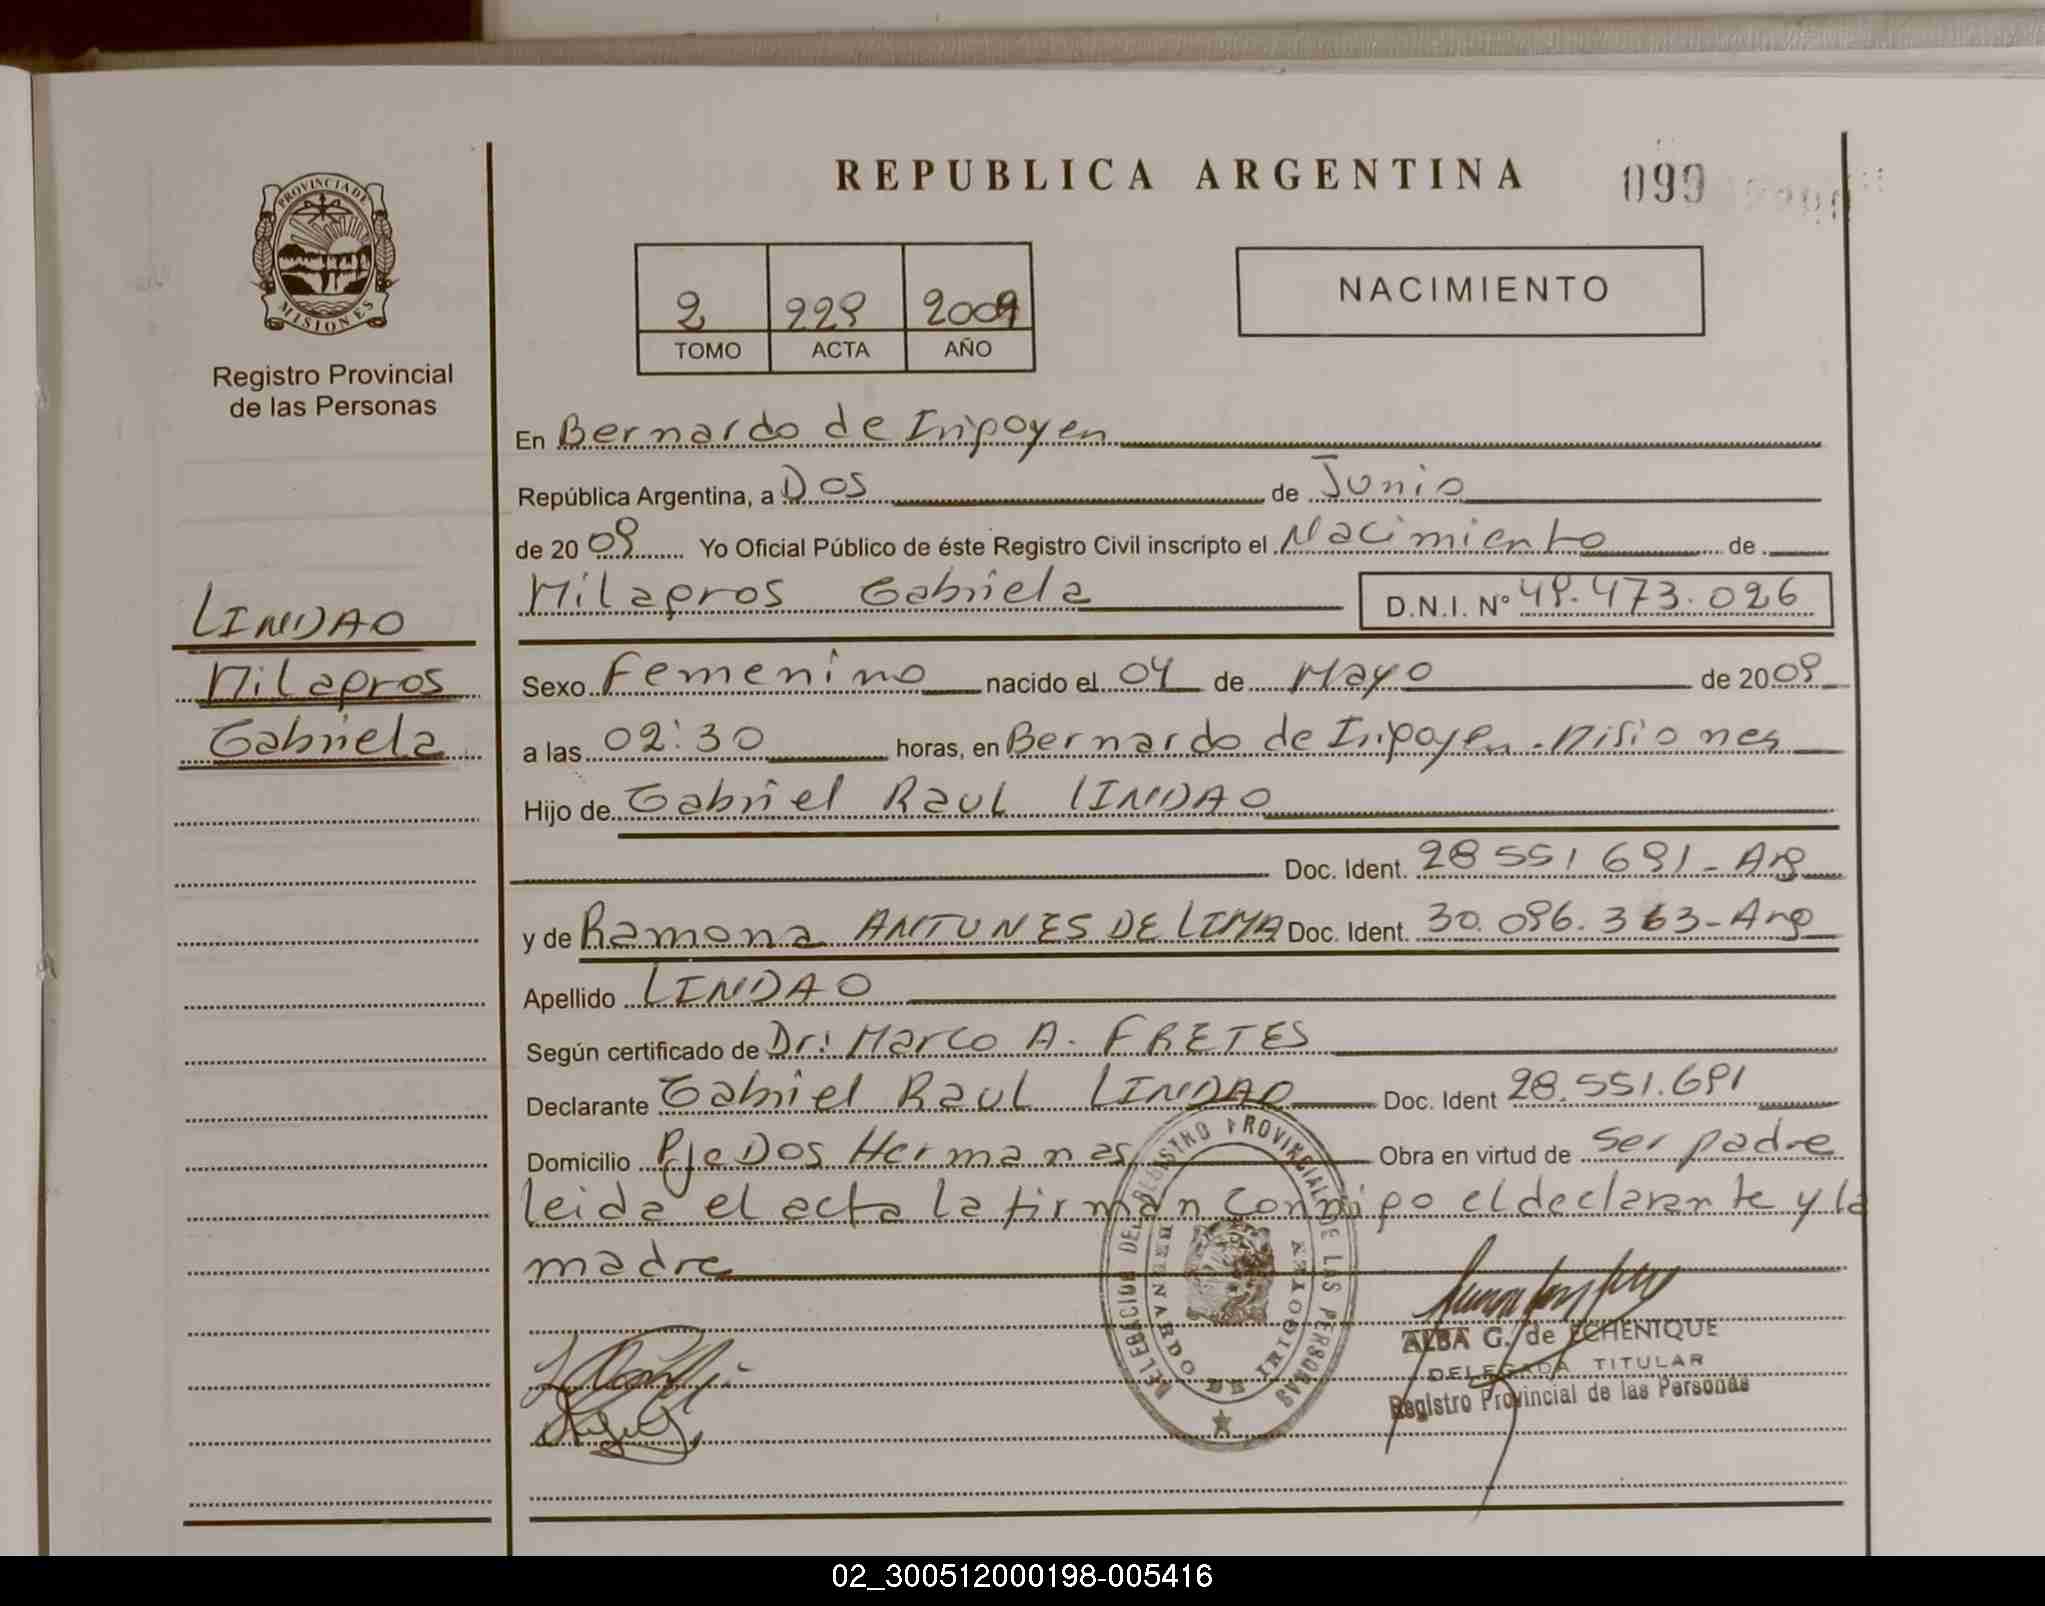 REPUBLICA ARGENTINA 099
PROVINCIA DE
MISIONES
Registro Provincial
de las Personas
2 229 2009
TOMO ACTA AÑO
NACIMIENTO
En Bernardo de Irigoyen
República Argentina, a Dos de Junio
de 20 09 Yo Oficial Público de éste Registro Civil inscripto el Nacimiento de
Milagros Gabriela D.N.I. Nº 49.473.026
LINDAO
Milagros
Gabriela
Sexo Femenino nacido el 04 de Mayo de 2009
a las 02:30 horas, en Bernardo de Irigoyen. Misiones
Hijo de Gabriel Raul LINDAO
Doc. Ident. 28 551 691 - Arg
y de Ramona ANTUNES DE LIMA Doc. Ident. 30.096.363 - Arg
Apellido LINDAO
Según certificado de Dr: Marco A. FRETES
Declarante Gabriel Raul LINDAO Doc. Ident 28.551.691
Domicilio Pje Dos Hermanas Obra en virtud de ser padre
leida el acta la firman conmigo el declarante y la
madre
DELEGACION DEL REGISTRO PROVINCIAL DE LAS PERSONAS
BERNARDO DE IRIGOYEN
ALBA G. de ECHENIQUE
DELEGADA TITULAR
Registro Provincial de las Personas
02_300512000198-005416